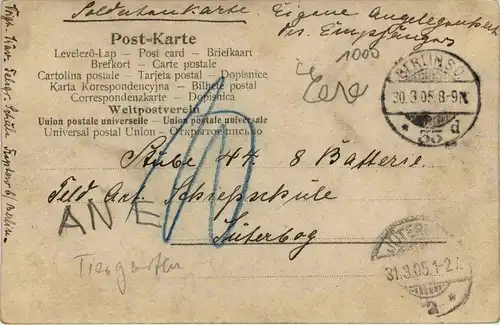 Soldatenkarte. Eigene Angelegenheit
des Empfängers
Post-Karte
Levelező-Lap — Post card — Briefkaart
Brefkort — Carte postale
Cartolina postale — Tarjeta postal — Dopisnice
Karta Korespondencyjna — Bilhete postal
Correspondenzkarte — Dopisnica
Weltpostverein
Union postale universelle — Union postale universale
Universal postal Union — Открытое письмо
1000
BERLIN SO
30.3.05.8-9N.
* 33 d
Stube 48. 8 Batterie.
Feld Art. Schießschule
Jüterbog
ANE
Tiergarten
JÜTERBOG
31.3.05.1-2
a *
Berlin